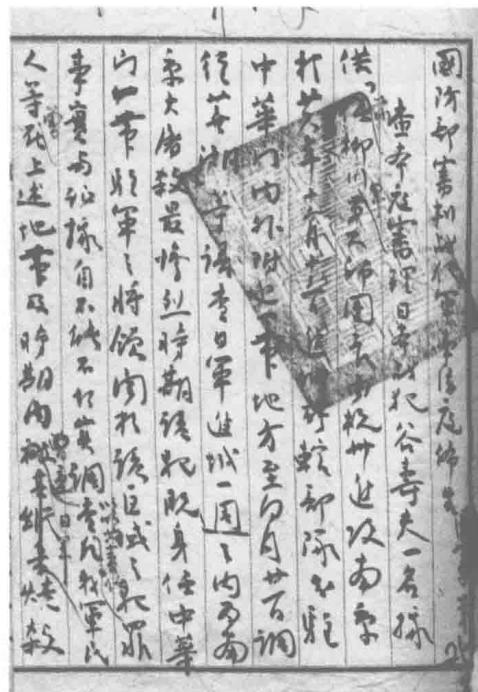 國防部審判戰犯軍事法庭佈告
查本庭審理日本戰犯谷壽夫一名據
供柳川軍六師團長由杭州進攻南京
於廿六年十二月十二日進佔所轄部隊分駐
中華門內外附近一帶地方至同月廿一日調
往蕪湖等語查日軍進城一週之內為南
京大屠殺最慘烈時期該犯既身任中華
門一帶駐軍之將領關於該區域之犯罪
事實與証據自不能不切實調查凡我軍民
人等在上述地帶及時期內被害